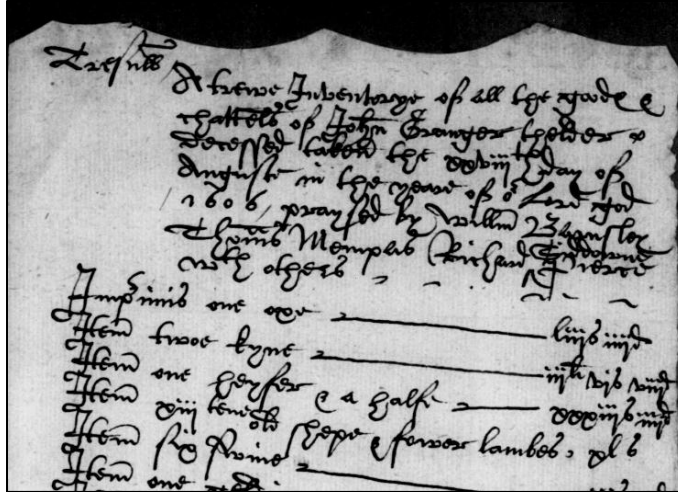 Tresull
A trewe Inventorye of all the goodes &
chattells of John Granger thelder
decessed taken the xxviiith day of
Auguste in the yeare of or Lord god
1606, praysed by Willm
Thoms Memplis Richard Pierce
wth others
Impimis one oxe liijs iiijd
Itm twoe kyne iiijli vjs viijd
Itm one heyfer & a halfe xxxiijs iiijd
Itm xiij shepe & fower lambes, xls
Itm six Swine
Itm one